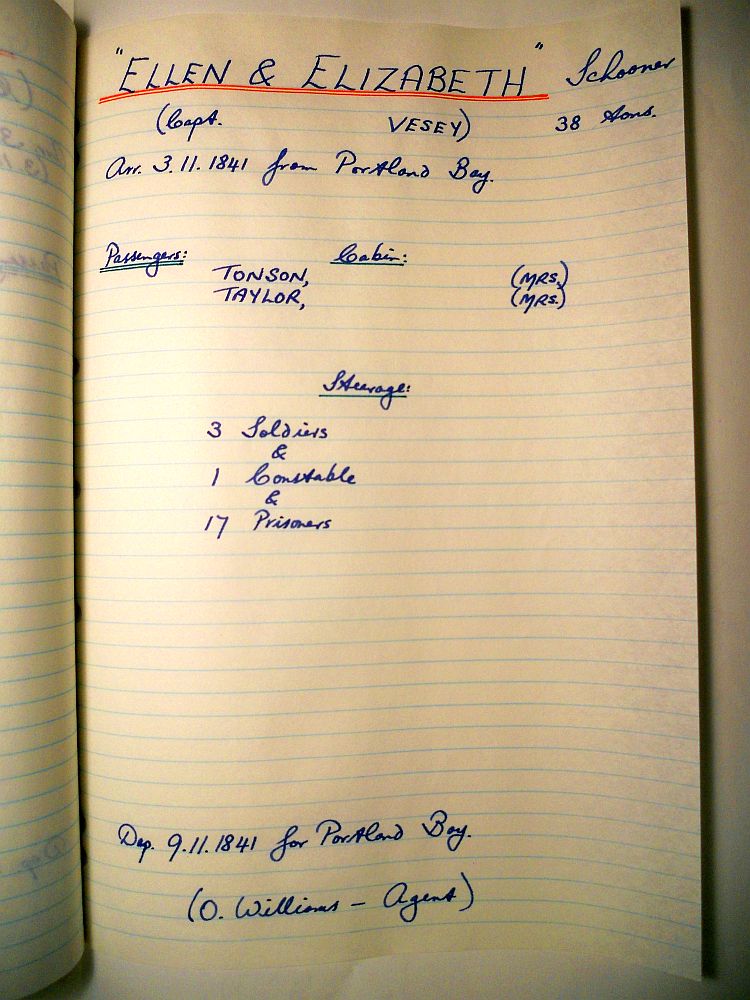 "ELLEN & ELIZABETH" Schooner
(Capt. VESEY) 38 tons.
Arr. 3.11.1841 from Portland Bay.
Passengers: Cabin:
TONSON, (MRS.)
TAYLOR, (MRS.)
Steerage:
3 Soldiers
&
1 Constable
&
17 Prisoners
Dep. 9.11.1841 for Portland Bay.
(O. Williams - Agent)